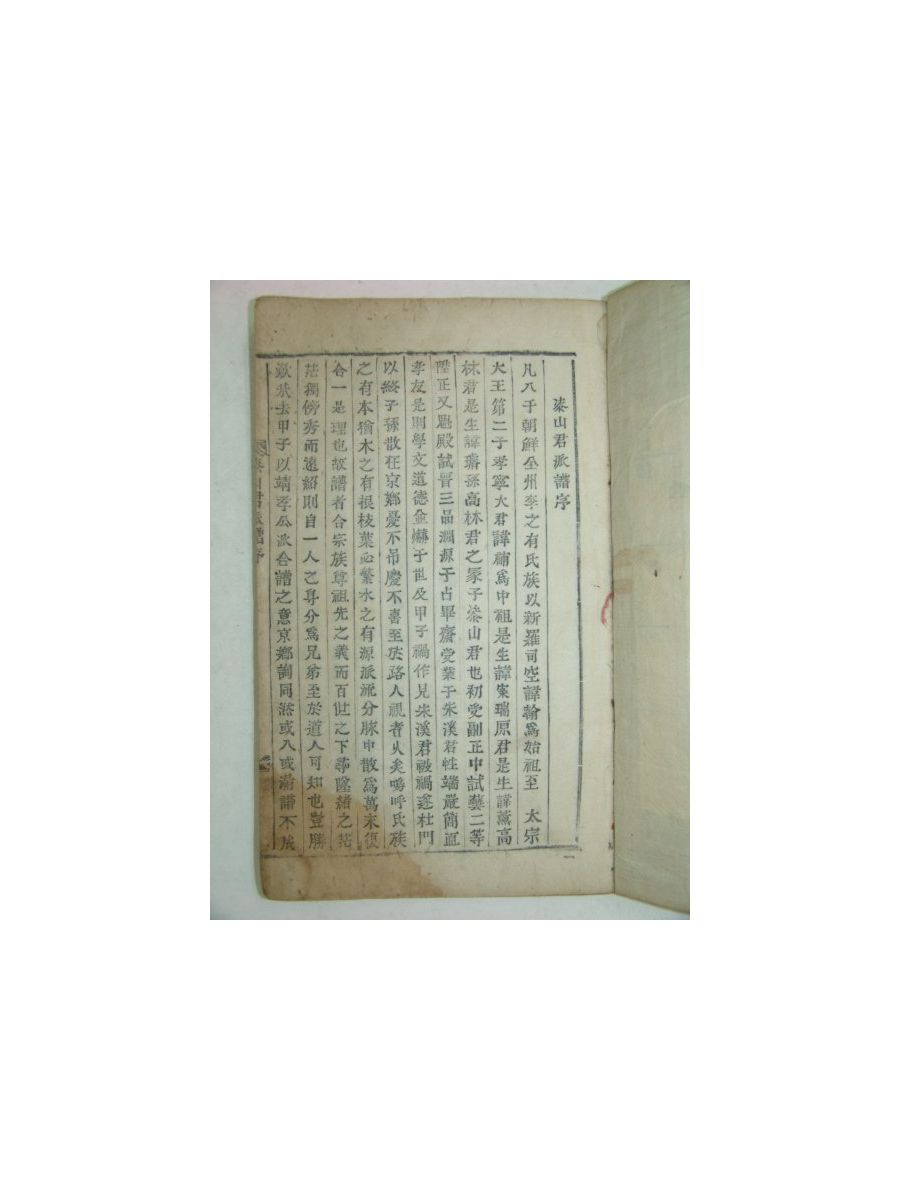 漆山君派譜序
凡入于朝鮮全州李之有氏族以新羅司空諱翰爲始祖至 太宗
大王第二子孝寧大君諱補爲中祖是生諱㝡瑞原君是生諱薰高
林君是生諱璠孫高林君之冡子漆山君也初受副正中試藝二等
陞正又魁殿試晉三品淵源于占畢齋受業于朱溪君性端嚴簡直
孝友是則學文道德並爀于世及甲子禍作見朱溪君被禍遂杜門
以終子孫散在京鄕憂不吊慶不喜至於路人視者久矣嗚呼氏族
之有本猶木之有根枝葉必繁水之有源派流分脉中散爲萬末復
合一是理也故譜者合宗族尊祖先之義而百世之下尋墜緖之茫
茫獨傍夯而遠紹則自一人之身分爲兄弟至於道人可知也豈勝
歎哉去甲子以靖孝公派合譜之意京鄕詢同然或入或漏譜不成